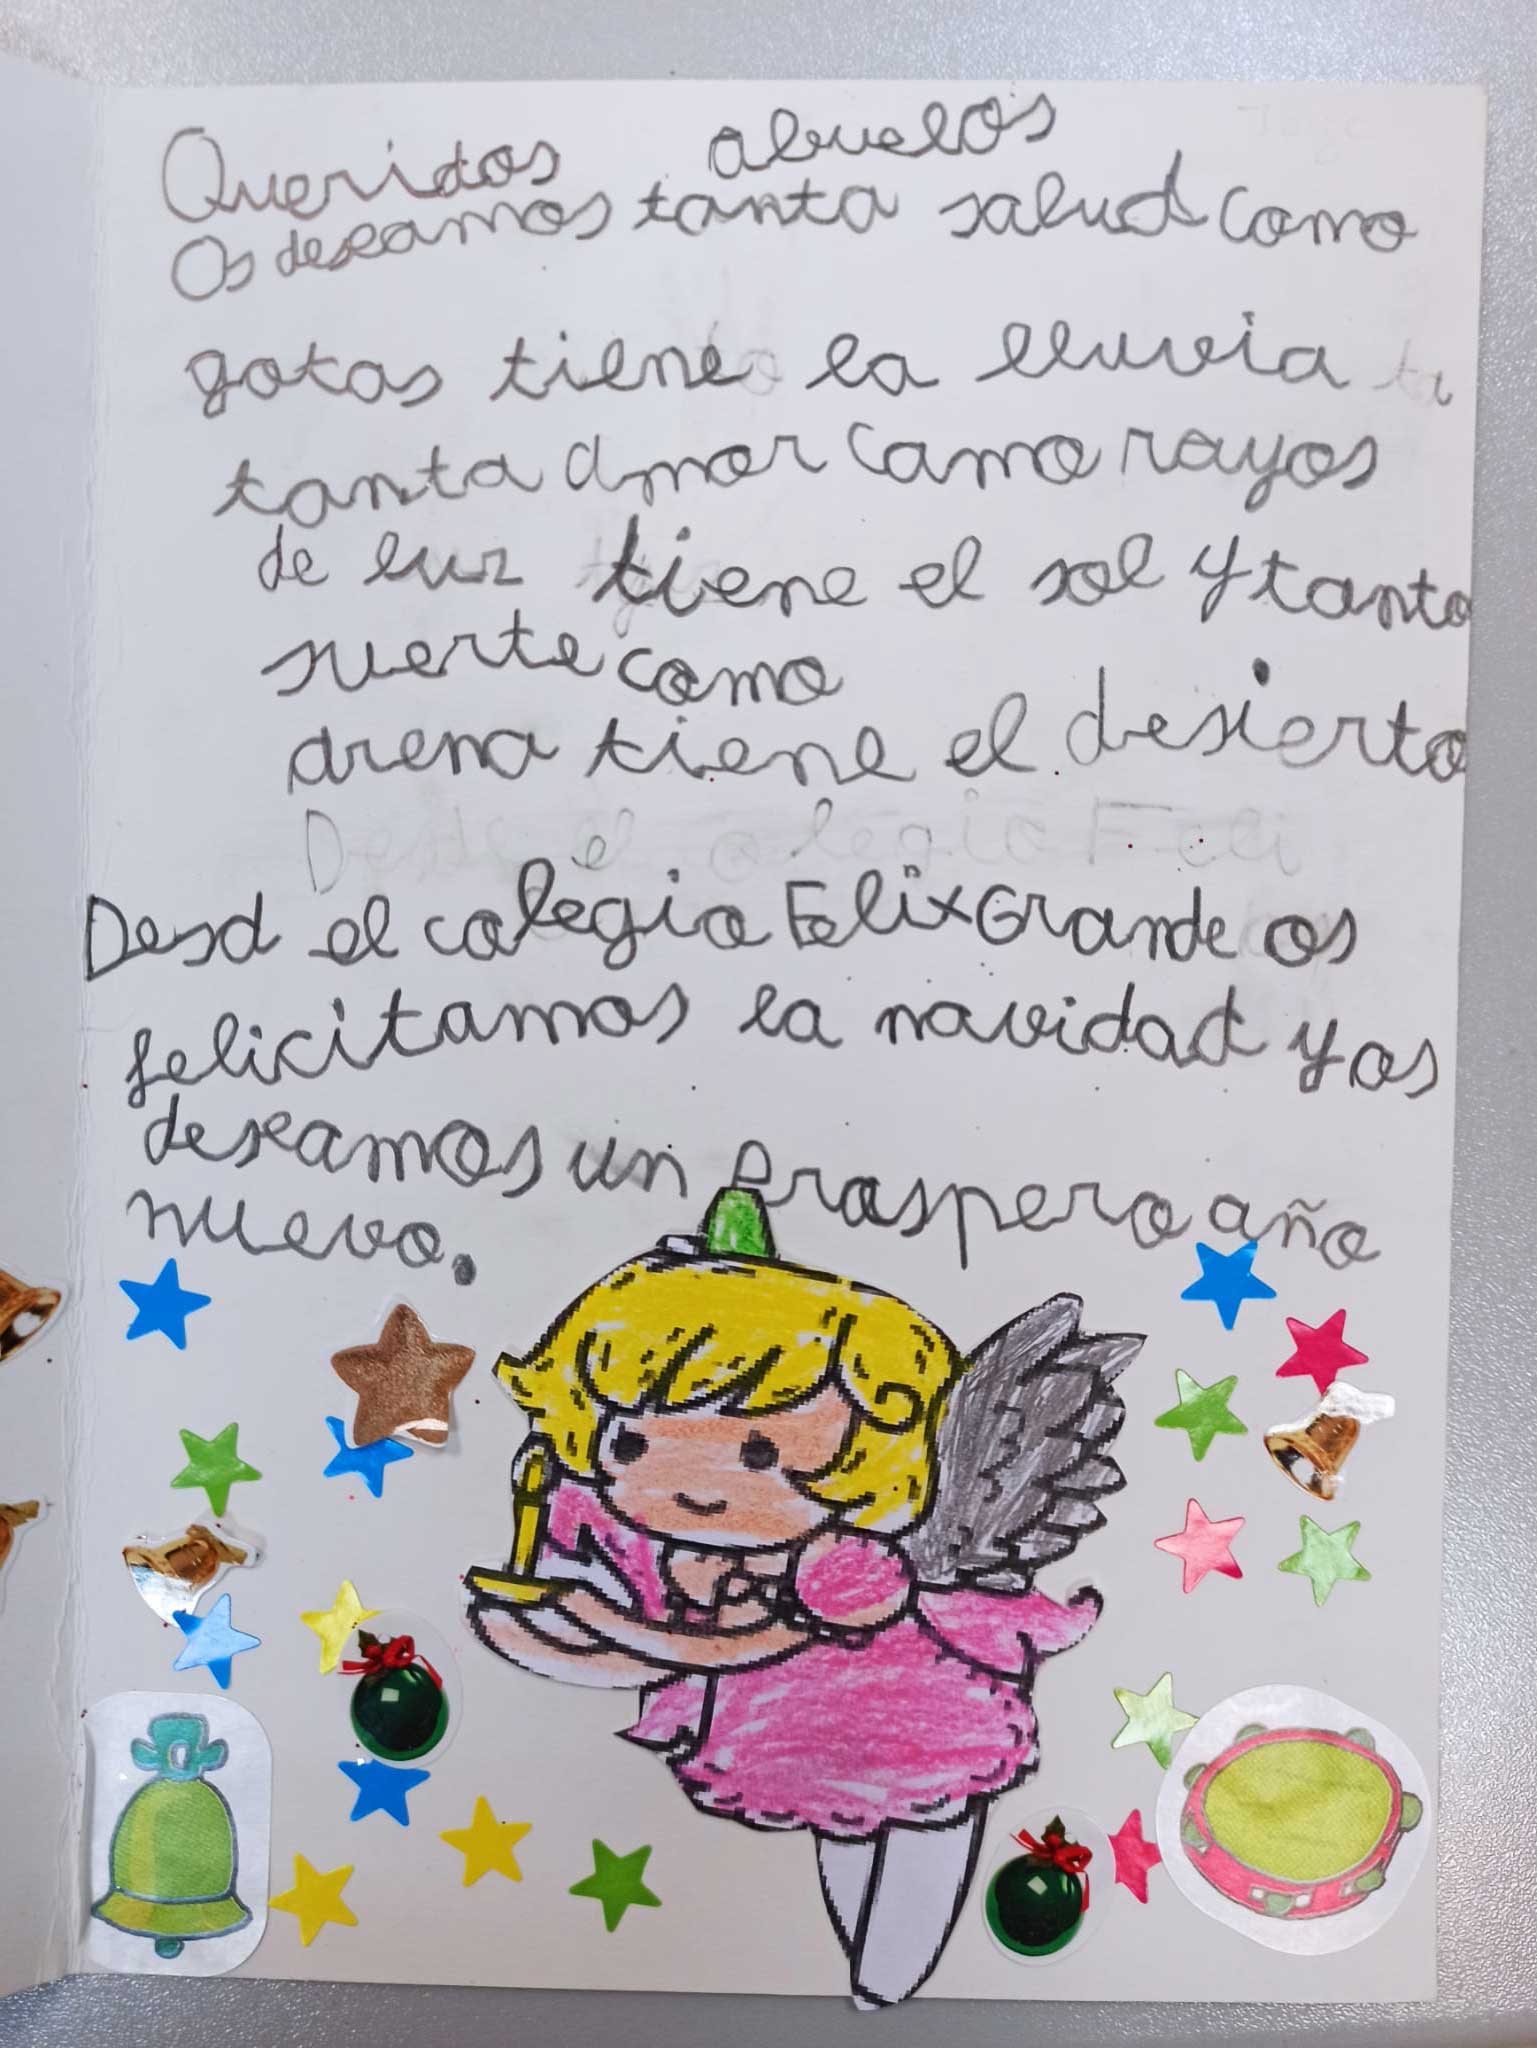 Queridos abuelos
Os deseamos tanta salud como
gotas tiene la lluvia
tanta amor como rayos
de luz tiene el sol y tanta
suerte como
arena tiene el desierto
Desde el colegio Feli
Desd el colegio Felix Grande os
felicitamos la navidad y os
deseamos un prospero año
nuevo.